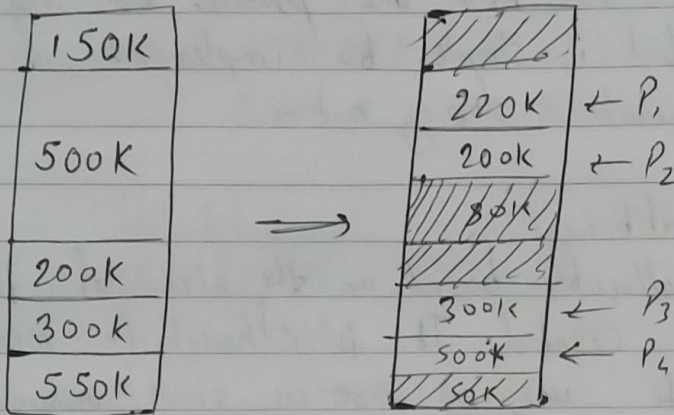 150K
500K
200K
300K
550K
220K ← P₁
200K ← P₂
80K
300K ← P₃
500K ← P₄
50K